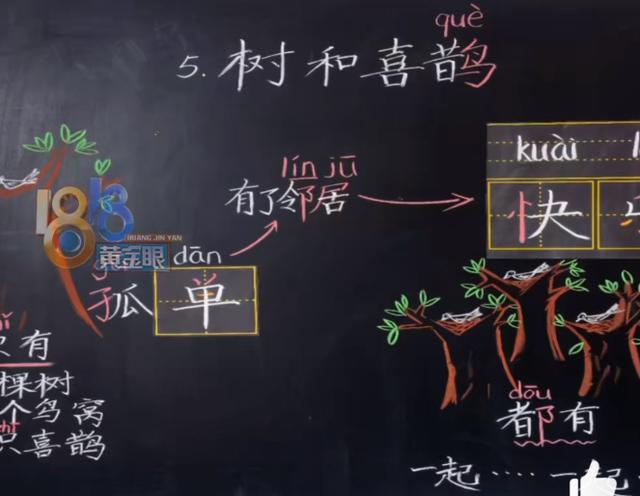 què
5. 树和喜鹊
lín jū
有了邻居
kuài
快
1818
HUANG JIN YAN
黄金眼
dān
孤单
只有
棵树
个鸟窝
只喜鹊
dōu
都有
一起……一起